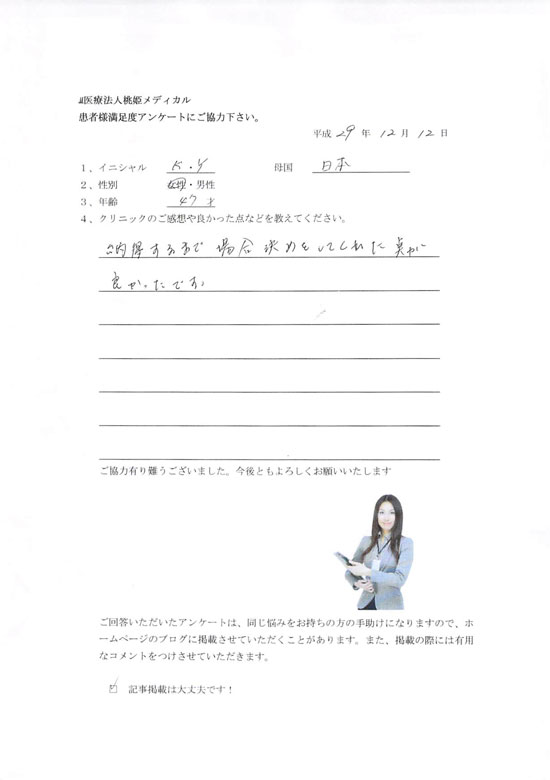 医療法人桃姫メディカル
患者様満足度アンケートにご協力下さい。
平成 29 年 12 月 12 日
1、イニシャル K.Y 母国 日本
2、性別 女性・男性
3、年齢 47 才
4、クリニックのご感想や良かった点などを教えてください。
納得するまで 場合 決めをしてくれた 点が
良かったです。
ご協力有り難うございました。今後ともよろしくお願いいたします
ご回答いただいたアンケートは、同じ悩みをお持ちの方の手助けになりますので、ホ
ームページのブログに掲載させていただくことがあります。また、掲載の際には有用
なコメントをつけさせていただきます。
☑ 記事掲載は大丈夫です！